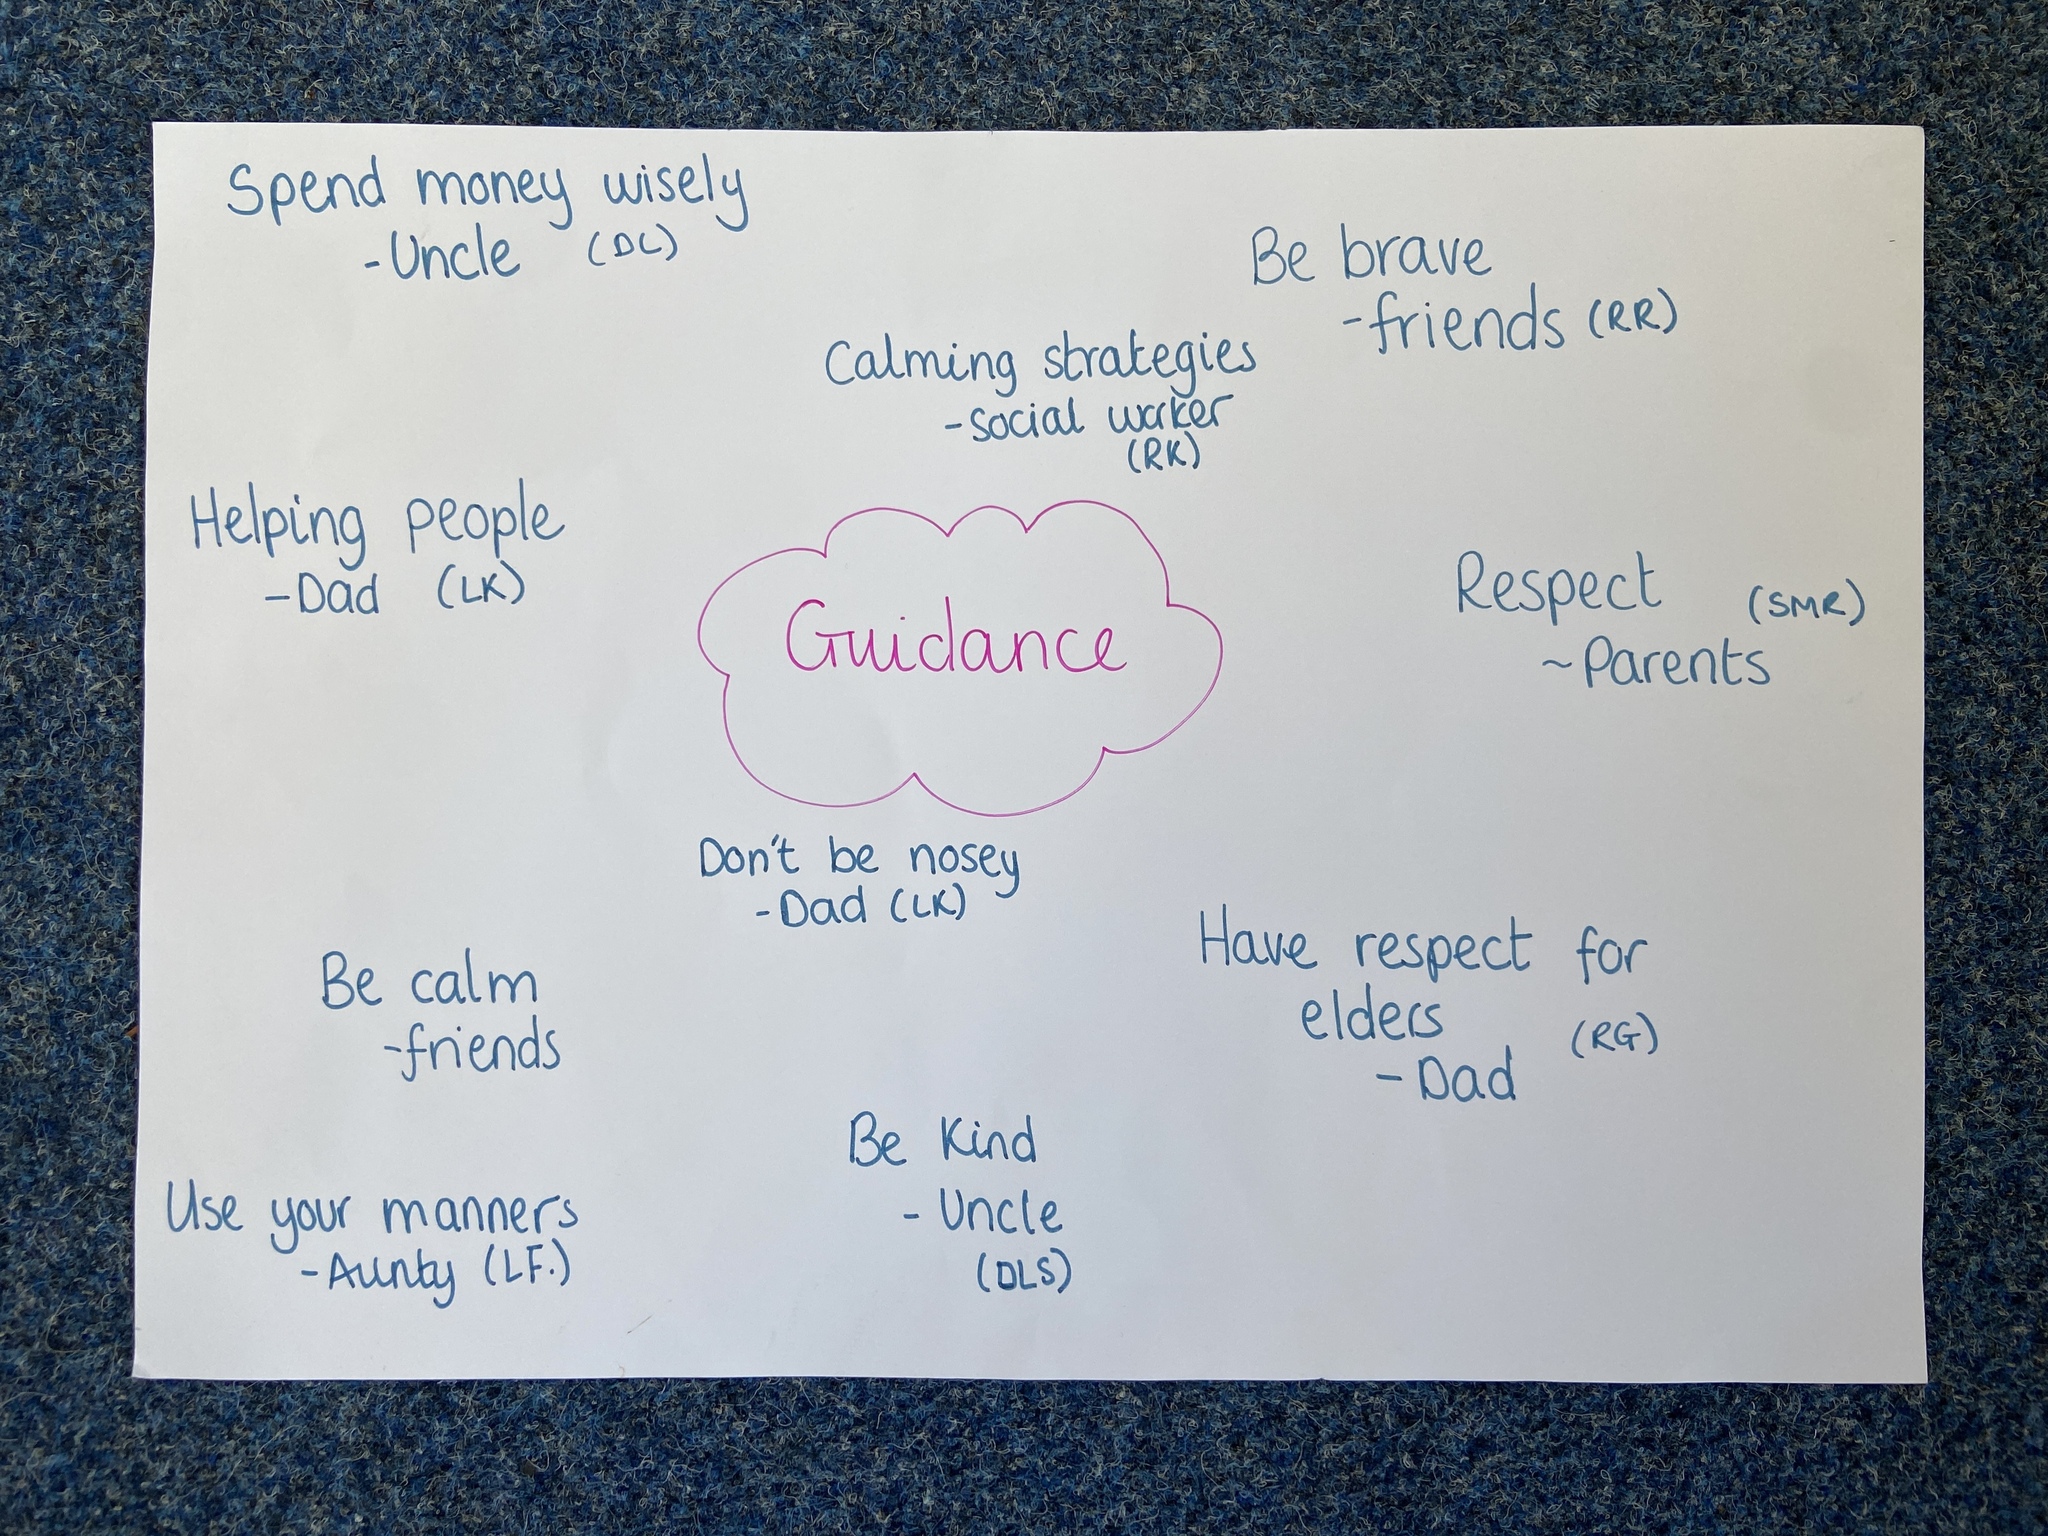 Spend money wisely
-Uncle (DL)
Be brave
-friends (RR)
Calming strategies
-social worker
(RK)
Helping people
-Dad (LK)
Guidance
Respect (SMR)
~Parents
Don't be nosey
-Dad (LK)
Have respect for
elders (RG)
-Dad
Be calm
-friends
Be Kind
-Uncle
(DLS)
Use your manners
-Aunty (LF.)